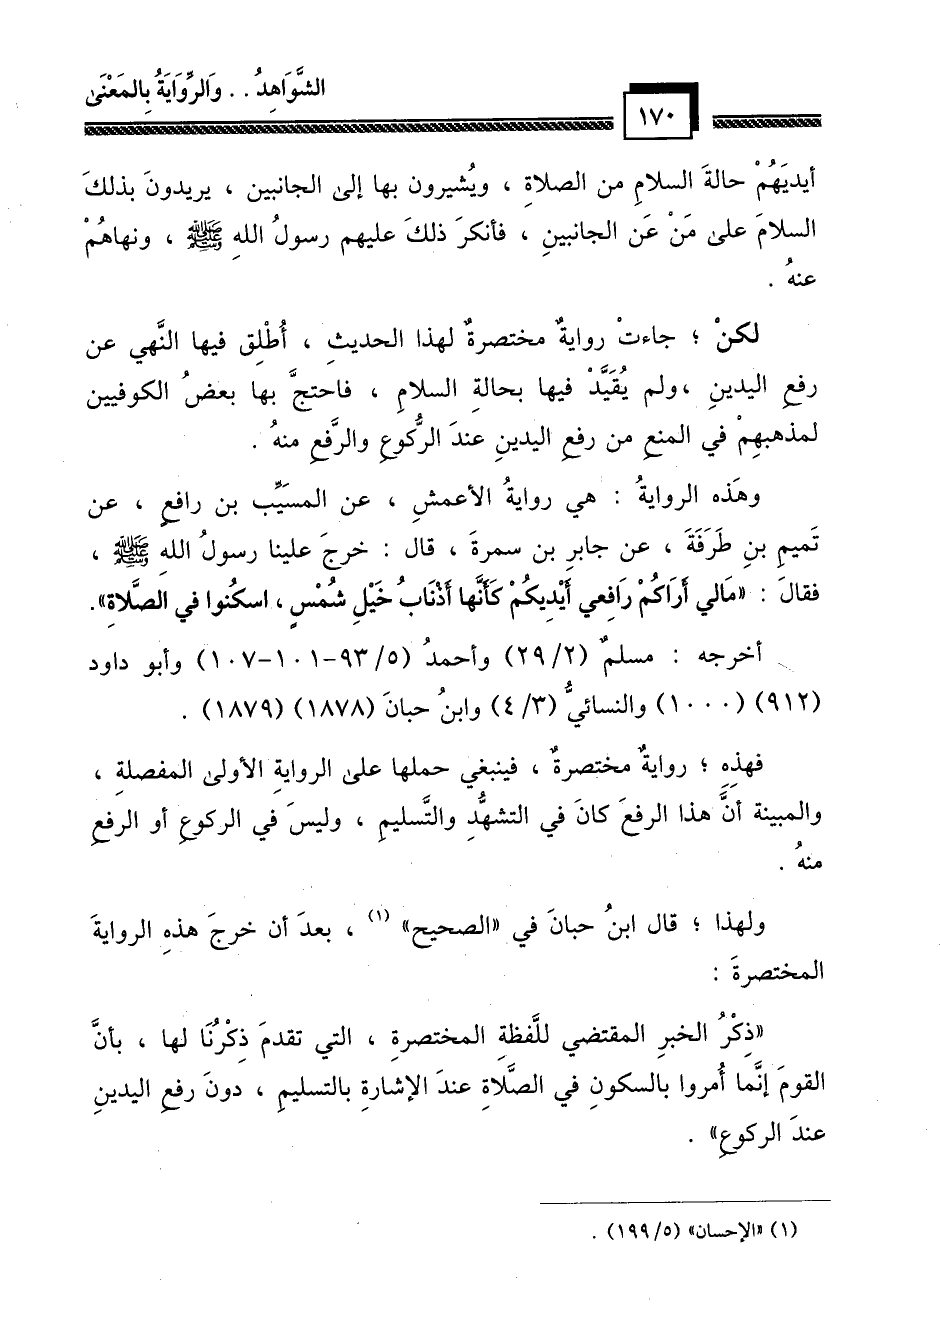 الشَّوَاهِدُ . . والرِّوَايَةُ بِالمَعْنَى
١٧٠
أيديَهُمْ حالةَ السلامِ من الصلاةِ ، ويُشيرون بها إلى الجانبين ، يريدونَ بذلكَ
السلامَ على مَنْ عَن الجانبينِ ، فأنكرَ ذلكَ عليهم رسولُ اللهِ ﷺ ، ونهاهُمْ
عنهُ .
لكنْ ؛ جاءتْ روايةٌ مختصرةٌ لهذا الحديثِ ، أُطْلِق فيها النَّهي عن
رفعِ اليدينِ ،ولم يُقَيَّدْ فيها بحالةِ السلامِ ، فاحتجَّ بها بعضُ الكوفيين
لمذهبهِمْ في المنعِ من رفعِ اليدينِ عندَ الرُّكوعِ والرَّفعِ منهُ .
وهَذه الروايةُ : هي روايةُ الأعمشِ ، عن المسَيِّب بن رافعٍ ، عن
تَميمِ بنِ طَرَفَةَ ، عن جابرِ بن سمرةَ ، قال : خرجَ علينا رسولُ اللهِ ﷺ ،
فقالَ : «مَالي أَرَاكُمْ رَافِعي أَيْدِيكُمْ كَأَنَّها أَذْنَابُ خَيْلٍ شُمْسٍ ، اسكُنوا في الصَّلاةِ».
أخرجه : مسلمٌ (٢/ ٢٩) وأحمدُ (٥/ ٩٣-١٠١-١٠٧) وأبو داود
(٩١٢) (١٠٠٠) والنسائيُّ (٣/ ٤) وابنُ حبانَ (١٨٧٨) (١٨٧٩) .
فهذِهِ ؛ روايةٌ مختصرةٌ ، فينبغي حملها على الروايةِ الأولى المفصلةِ ،
والمبينةِ أنَّ هذا الرفعَ كانَ في التشهُّدِ والتَّسليمِ ، وليسَ في الركوعِ أو الرفعِ
منهُ .
ولهذا ؛ قال ابنُ حبانَ في «الصحيح» (١) ، بعدَ أن خرجَ هذهِ الروايةَ
المختصرةَ :
«ذِكْرُ الخبرِ المقتضي للَّفظةِ المختصرةِ ، التي تقدمَ ذِكْرُنَا لها ، بأنَّ
القومَ إنَّما أُمروا بالسكونِ في الصَّلاةِ عندَ الإشارةِ بالتسليمِ ، دونَ رفعِ اليدينِ
عندَ الركوعِ» .
(١) «الإحسان» (٥/ ١٩٩) .